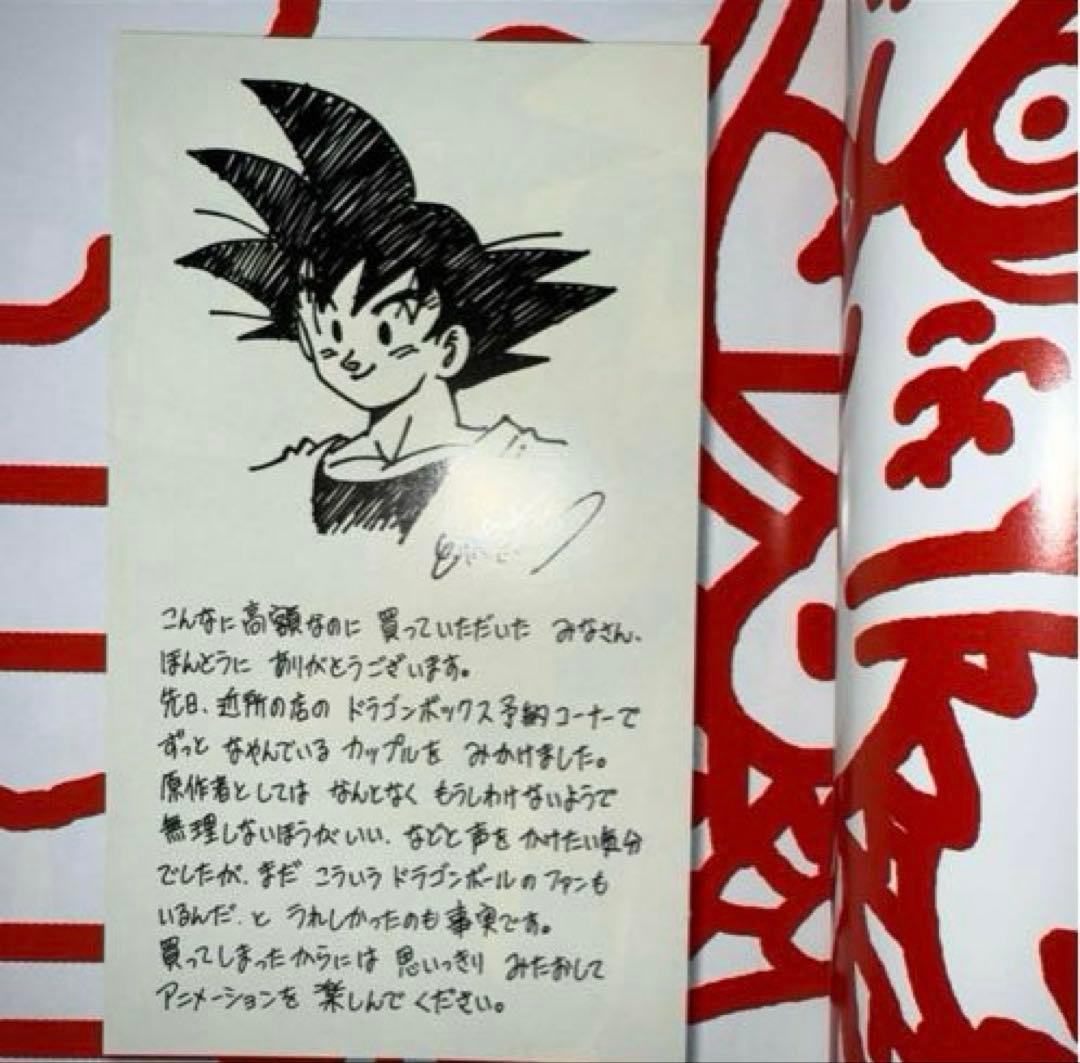 こんなに高額なのに 買っていただいた みなさん、
ほんとうに ありがとうございます。
先日、近所の店の ドラゴンボックス予約コーナーで
ずっと なやんでいる カップルを みかけました。
原作者としては なんとなく もうしわけないようで
無理しないほうがいい、などと声を かけたい気分
でしたが、まだ こういう ドラゴンボールの ファンも
いるんだ、と うれしかったのも 事実です。
買ってしまったからには 思いっきり みたおして
アニメーションを 楽しんで ください。